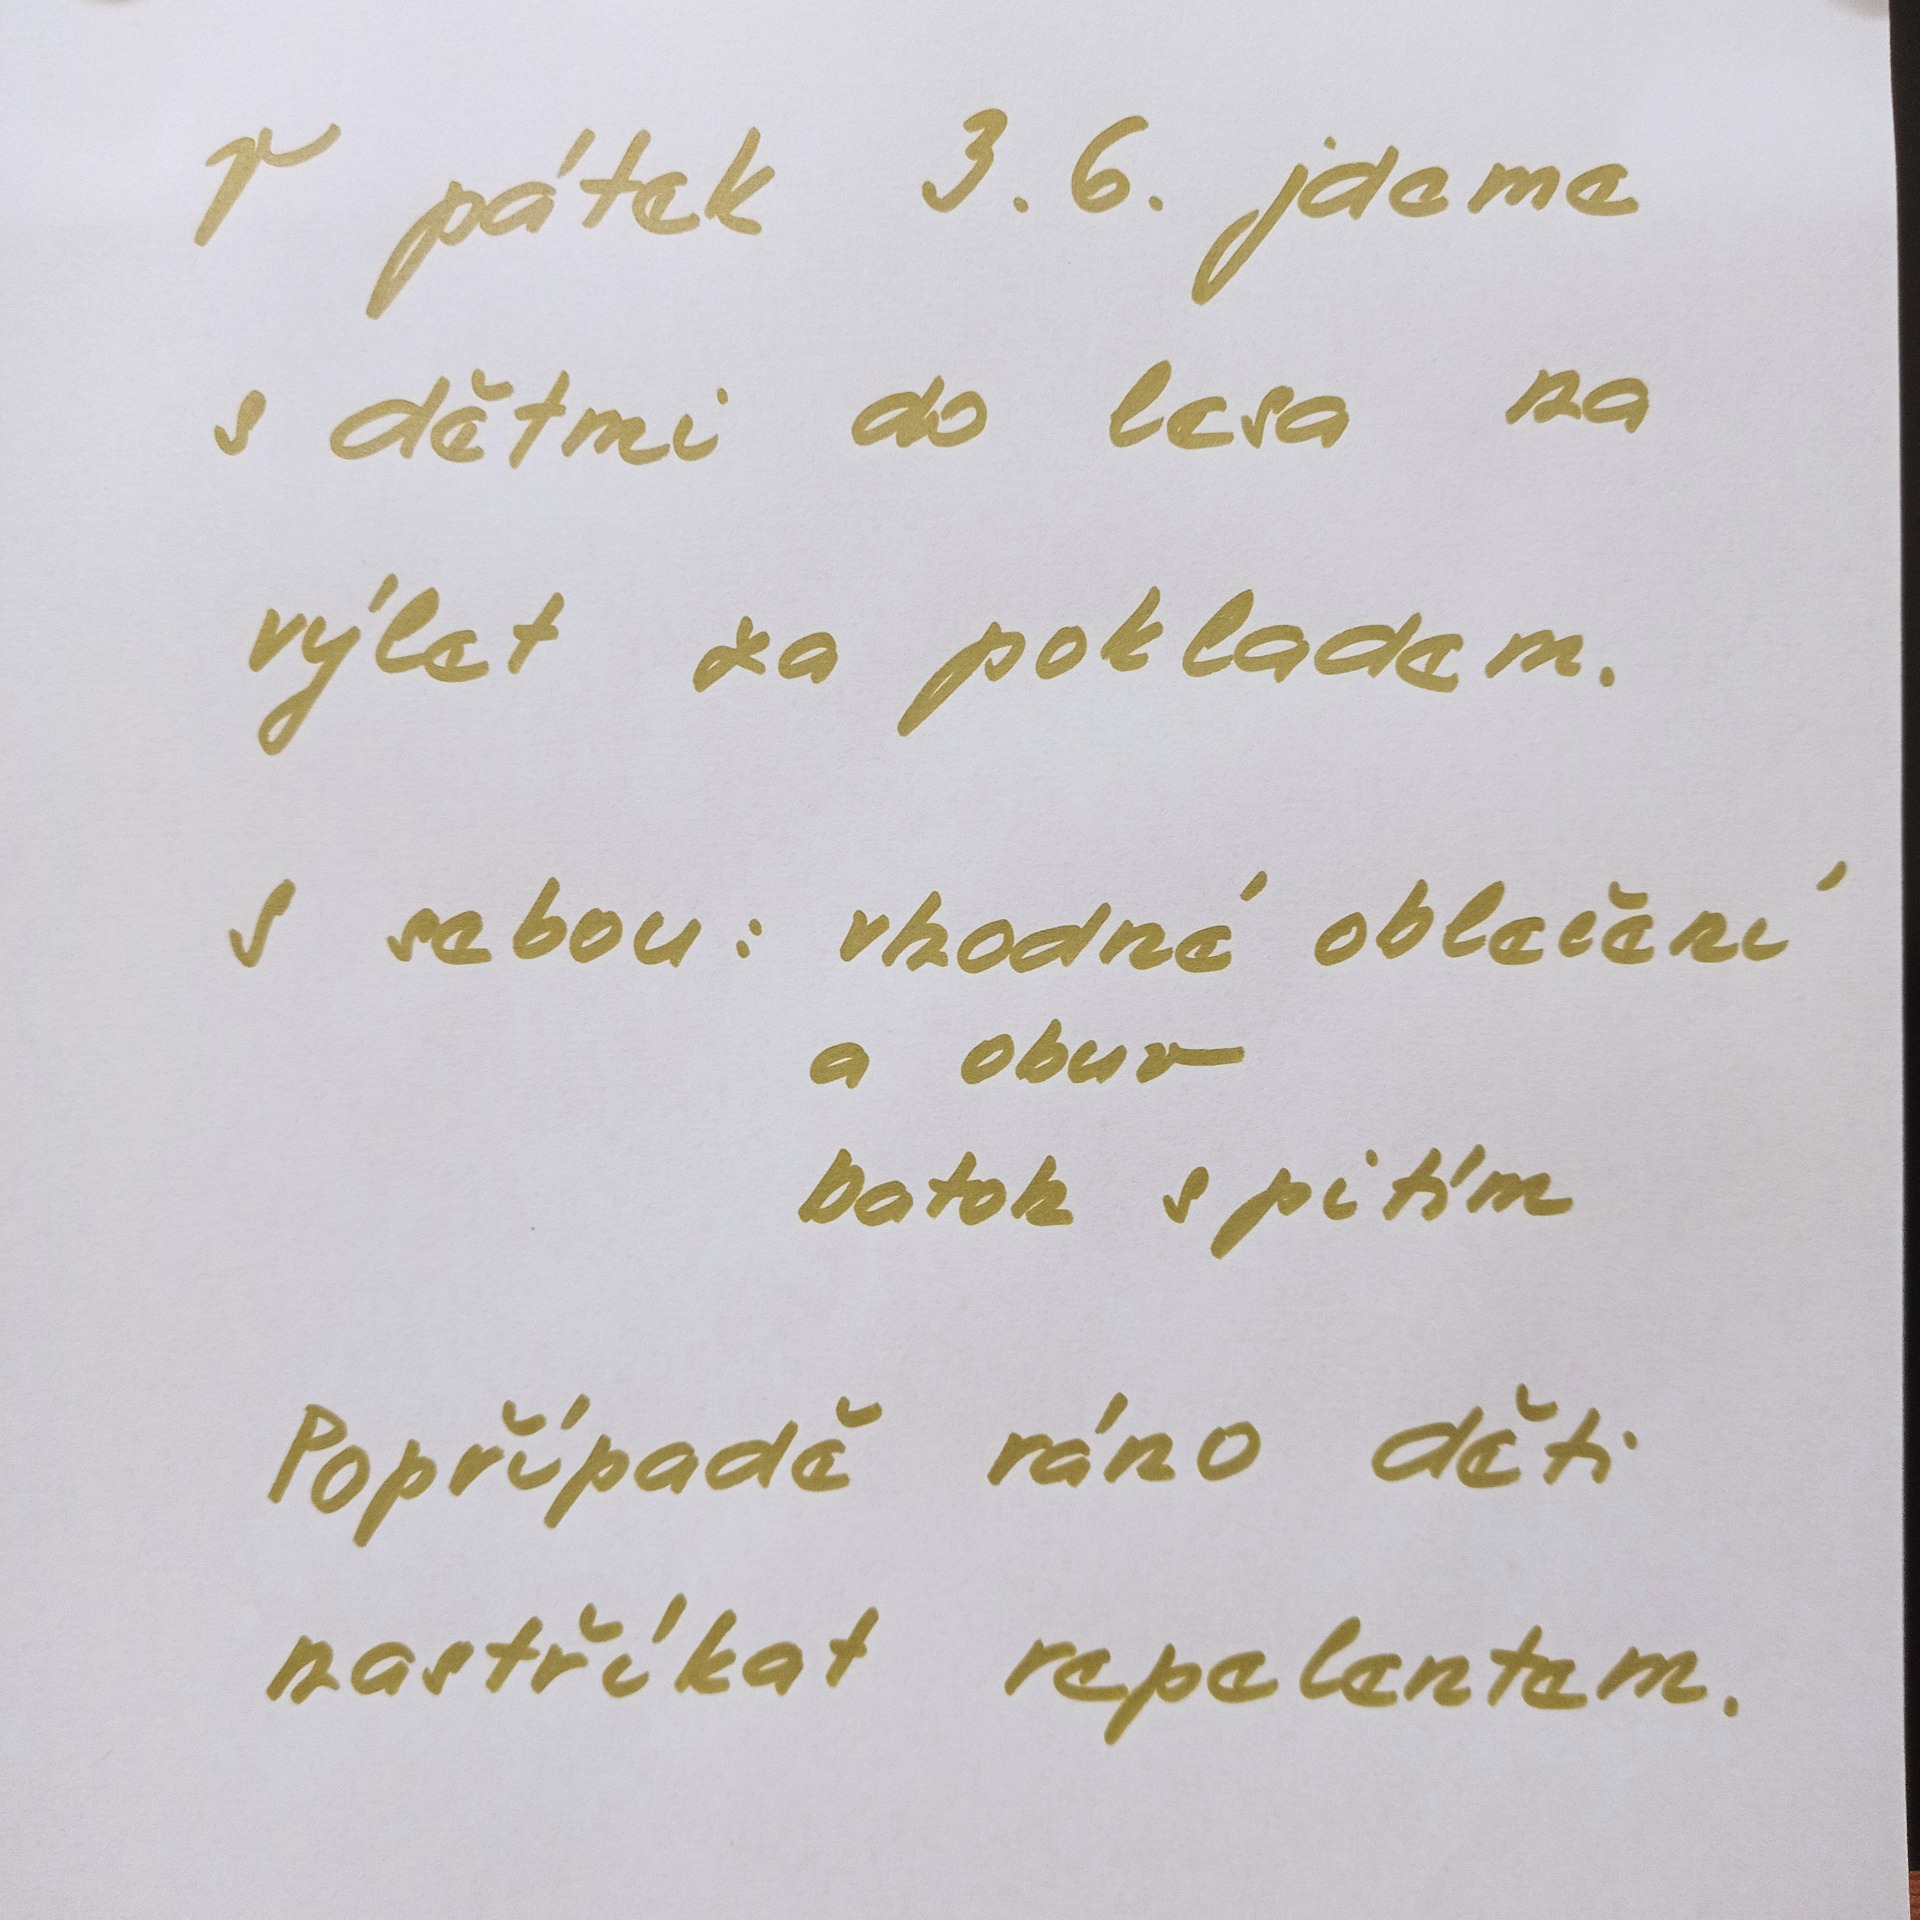 V pátek 3.6. jdeme
s dětmi do lesa na
výlet za pokladem.
S sebou: vhodné oblečení
a obuv
batoh s pitím
Popřípadě ráno děti
nastříkat repelentem.